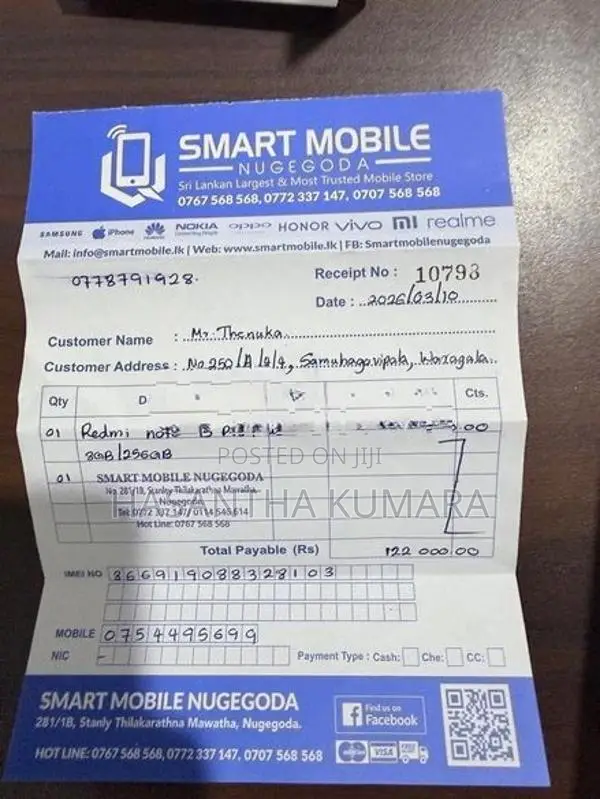 SMART MOBILE
NUGEGODA
Sri Lankan Largest & Most Trusted Mobile Store
0767 568 568, 0772 337 147, 0707 568 568
SAMSUNG iPhone HUAWEI NOKIA oppo HONOR vivo mi realme
Mail: info@smartmobile.lk | Web: www.smartmobile.lk | FB: Smartmobilenugegoda
0778791928.
Receipt No : 10793
Date : 2026/03/10
Customer Name : Mr. Thenuka
Customer Address : No 250/A/2/4, Samuhagavipata, Waragala.
Qty D Cts.
01 Redmi note .00
8GB/256GB
POSTED ON JIJI
01 SMART MOBILE NUGEGODA
No. 281/1B, Stanly Thilakarathna Mawatha
Nugegoda
Tel: 0772 337 147/ 0114 545 614
Hot Line: 0767 568 568
THA KUMARA
Total Payable (Rs) 122 000.00
IMEI NO 866919088328103
MOBILE 0754495699
NIC - Payment Type : Cash: Che: CC:
SMART MOBILE NUGEGODA
281/1B, Stanly Thilakarathna Mawatha, Nugegoda.
HOT LINE: 0767 568 568, 0772 337 147, 0707 568 568
Find us on
Facebook
VISA